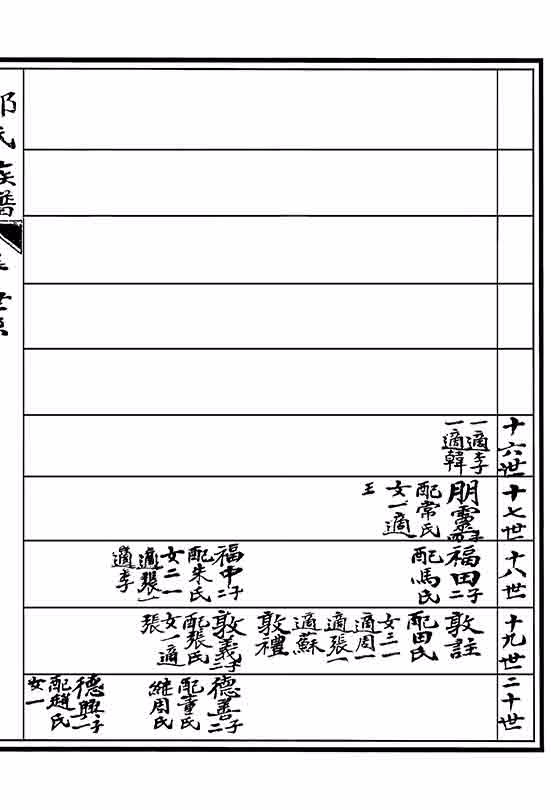 十六世
一適李
一適韓
十七世
朋靈四子
配常氏
女一適
王
十八世
福田二子
配馬氏
福中二子
配朱氏
女二一
適張一
適李
十九世
敦註
配田氏
女三一
適周一
適張一
適蘇
敦禮
敦義二子
配張氏
女一適
張
二十世
德善二子
配董氏
繼周氏
德興一子
配趙氏
女一
氏族譜